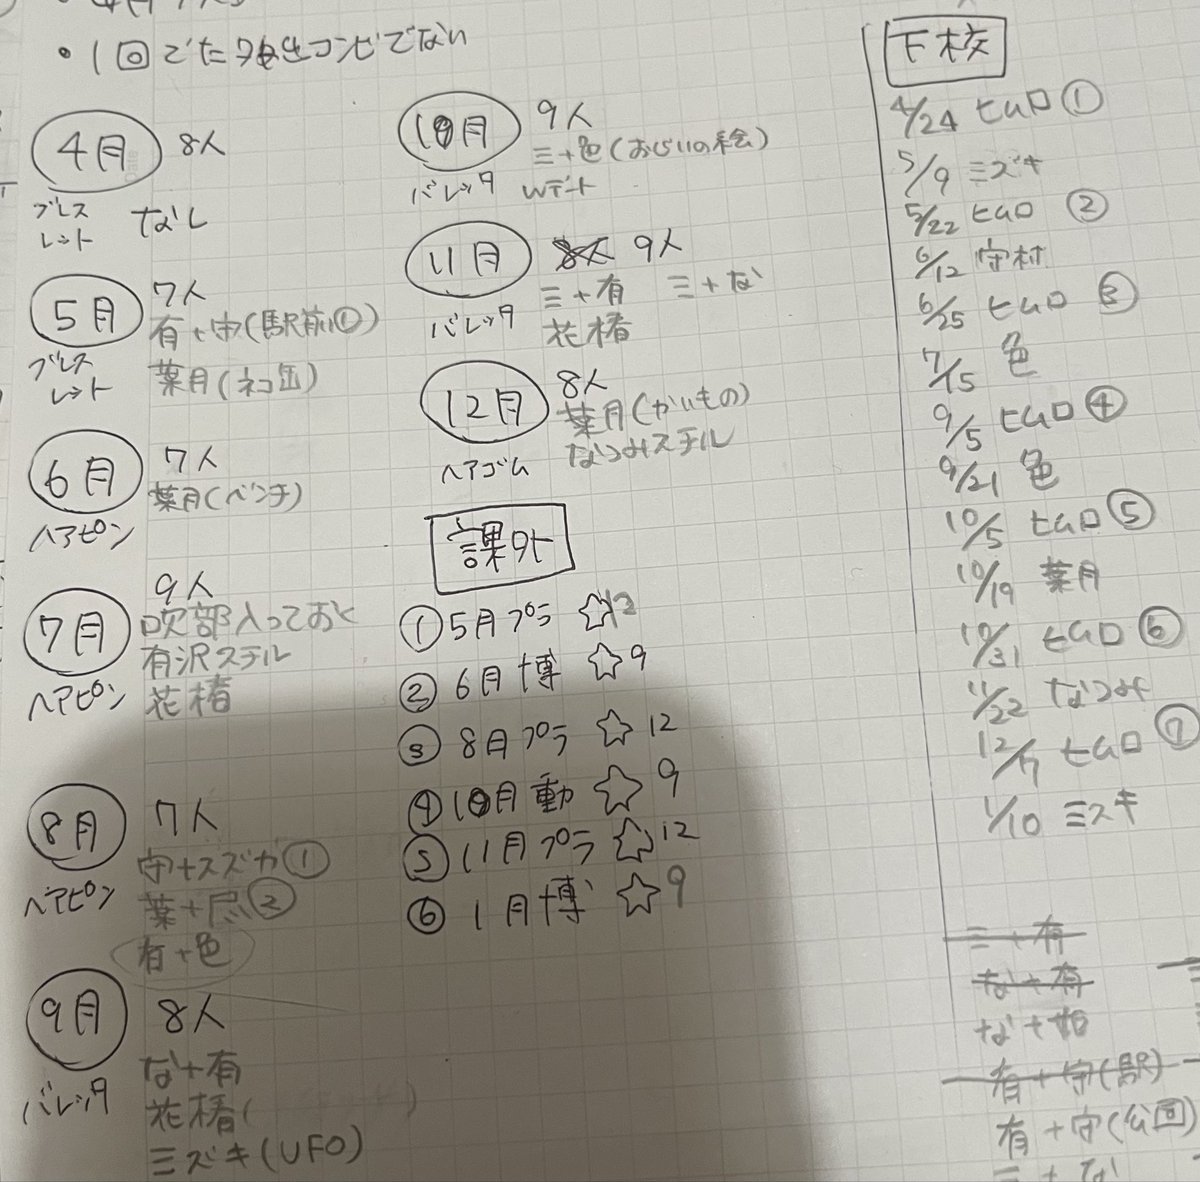 ・1回でた発生コンビでない
4月 8人
ブレスレット なし
5月 7人
有+守(駅前①)
ブレスレット 葉月(ネコ缶)
6月 7人
葉月(ベンチ)
ヘアピン
7月 9人
吹部入っておく
有沢ステル
ヘアピン 花椿
8月 7人
守+スズカ①
ヘアピン 葉+尽②
有+色
9月 8人
バレッタ な+有
花椿(
ミズキ(UFO)
10月 9人
三+色(おじいの絵)
バレッタ Wデート
11月 9人
三+有 三+な
バレッタ 花椿
12月 8人
葉月(かいもの)
ヘアゴム なつみステル
課外
①5月プラ ☆12
②6月博 ☆9
③8月プラ ☆12
④10月動 ☆9
⑤11月プラ ☆12
⑥1月博 ☆9
下校
4/24 ヒムロ①
5/9 ミズキ
5/22 ヒムロ②
6/12 守村
6/25 ヒムロ③
7/15 色
9/5 ヒムロ④
9/21 色
10/5 ヒムロ⑤
10/19 葉月
10/31 ヒムロ⑥
11/22 なつみ
12/17 ヒムロ⑦
1/10 ミズキ
三+有
な+有
な+如
有+守(駅)
有+守(公園)
三+な